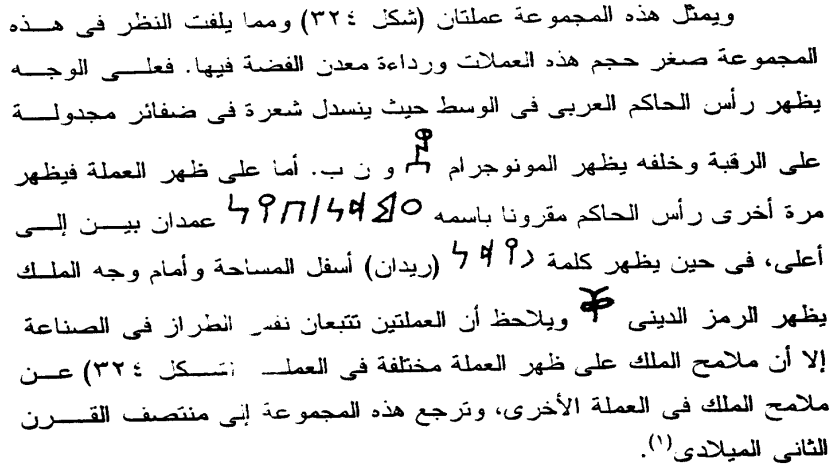 ويمثل هذه المجموعة عملتان (شكل ٣٢٤) ومما يلفت النظر فى هذه
المجموعة صغر حجم هذه العملات ورداءة معدن الفضة فيها. فعلى الوجه
يظهر رأس الحاكم العربى فى الوسط حيث ينسدل شعرة فى ضفائر مجدولة
على الرقبة وخلفه يظهر المونوجرام و ن ب. أما على ظهر العملة فيظهر
مرة أخرى رأس الحاكم مقرونا باسمه 𐩲𐩣𐩵𐩬𐩽𐩨𐩺𐩬 عمدان بين إلى
أعلى، فى حين يظهر كلمة 𐩧𐩺𐩵𐩬 (ريدان) أسفل المساحة وأمام وجه الملك
يظهر الرمز الدينى ويلاحظ أن العملتين تتبعان نفس الطراز فى الصناعة
إلا أن ملامح الملك على ظهر العملة مختلفة فى شكل ٣٢٤) عن
ملامح الملك فى العملة الأخرى، وترجع هذه المجموعة إلى منتصف القرن
الثانى الميلادى(١).